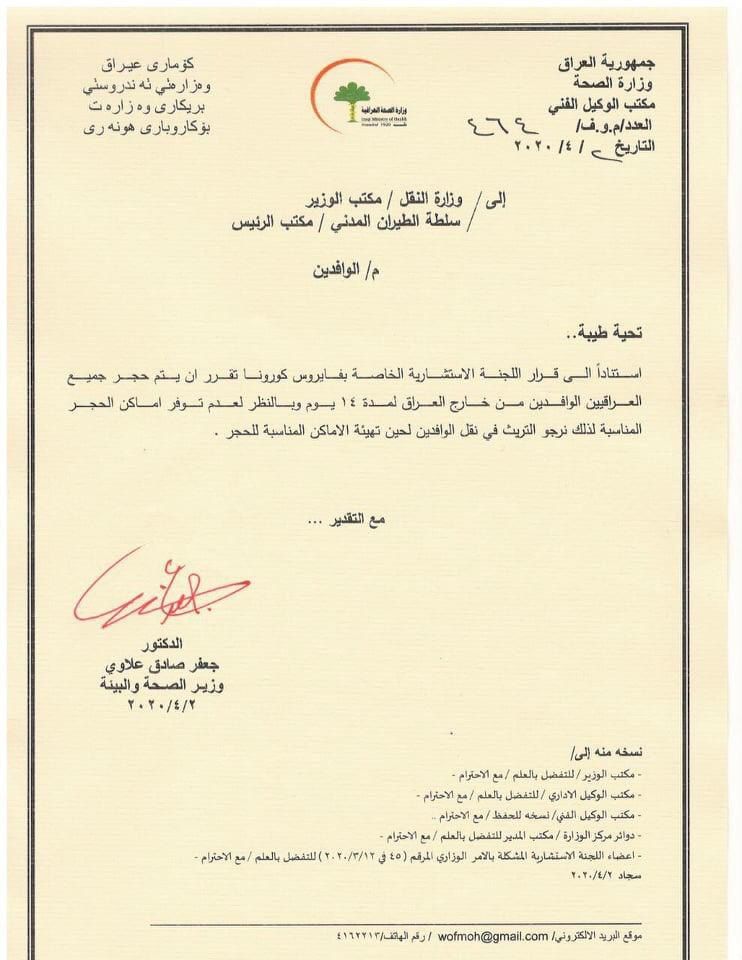 جمهورية العراق
وزارة الصحة
مكتب الوكيل الفني
العدد/م.و.ف/ ٤٦٤
التاريخ ٢/ ٤/ ٢٠٢٠
كۆماری عیراق
وەزارەتي تە ندروستي
بریکاری وە زارە ت
بۆکاروباری هونە ری
وزارة الصحة العراقية
Iraqi Ministry of Health
Founded 1920
إلى/ وزارة النقل / مكتب الوزير
/ سلطة الطيران المدني / مكتب الرئيس
م/ الوافدين
تحية طيبة..
استناداً الى قرار اللجنة الاستشارية الخاصة بفايروس كورونا تقرر ان يتم حجر جميع
العراقيين الوافدين من خارج العراق لمدة ١٤ يوم وبالنظر لعدم توفر اماكن الحجر
المناسبة لذلك نرجو التريث في نقل الوافدين لحين تهيئة الاماكن المناسبة للحجر .
مع التقدير ...
الدكتور
جعفر صادق علاوي
وزير الصحة والبيئة
٢٠٢٠/٤/٢
نسخه منه إلى/
- مكتب الوزير/ للتفضل بالعلم / مع الاحترام -
- مكتب الوكيل الاداري/ للتفضل بالعلم / مع الاحترام -
- مكتب الوكيل الفني/ نسخه للحفظ / مع الاحترام ..
- دوائر مركز الوزارة / مكتب المدير للتفضل بالعلم / مع الاحترام -
- اعضاء اللجنة الاستشارية المشكلة بالامر الوزاري المرقم ( ٤٥ في ٢٠٢٠/٣/١٢ ) للتفضل بالعلم / مع الاحترام -
سجاد ٢٠٢٠/٤/٢
موقع البريد الالكتروني/ wofmoh@gmail.com / رقم الهاتف/٤١٦٢٢١٣